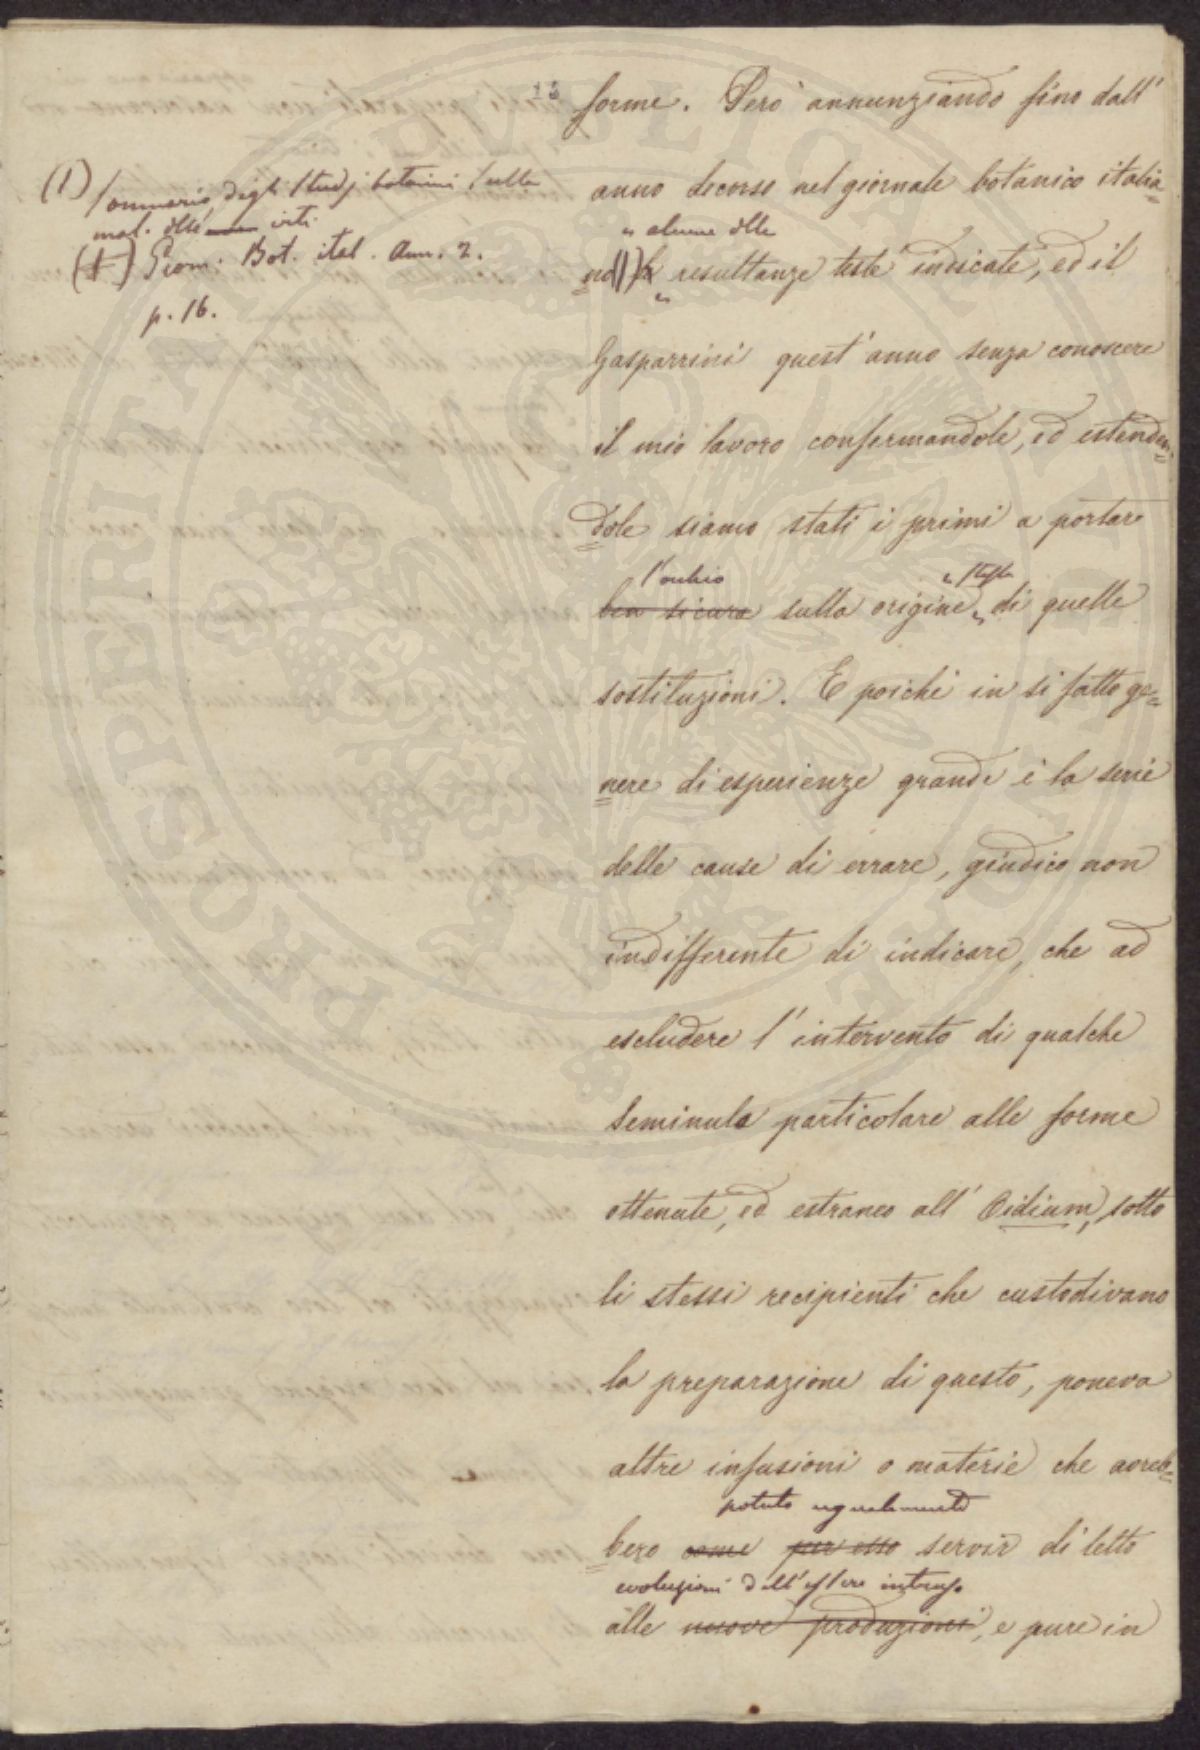 13
forme. Però annunziando fino dall'
anno decorso nel giornale botanico italia=
alcune delle
no (1) le resultanze testè indicate, ed il
Gasparrini quest'anno senza conoscere
il mio lavoro confermandole, ed estenden=
dole siamo stati i primi a portare
l'occhio stessa
ben sicura sulla origine di quelle
sostituzioni. E poichè in sì fatto ge=
nere di esperienze grande è la serie
delle cause di errare, giudico non
indifferente di indicare, che ad
escludere l'intervento di qualche
seminula particolare alle forme
ottenute, ed estraneo all' Oidium, sotto
li stessi recipienti che custodivano
la preparazione di questo, poneva
altre infusioni o materie che avreb=
potuto ugualmente
bero come per esso servir di letto
evoluzioni dell'essere intruso
alle nuove produzioni, e pure in
(1) Sommario degli Studj botanici sulla
mal. delle viti
(1) Giorn. Bot. ital. Ann. 2.
p. 16.
PVBLICAE PROSPERITATI